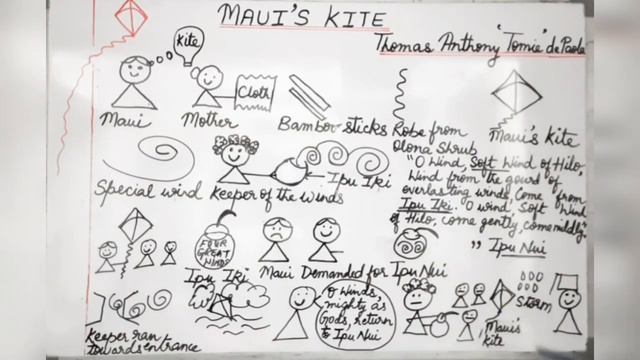 MAUI'S KITE
Thomas Anthony 'Tomie' de Paola
Kite
Cloth
Maui
Mother
Bamboo sticks
Robe from
Olona Shrub
Maui's kite
"O Wind, Soft Wind of Hilo,
Wind from the gourd of
overlasting winds, Come from
Ipu Iki. O wind, Soft Wind
of Hilo, come gently, come mildly.
"
Ipu Iki
Special wind
Keeper of the winds
FOUR
GREAT
WINDS
Ipu Iki
Maui Demanded for Ipu Nui
Ipu Nui
Keeper ran
towards entrance
O Winds,
mighty as
Gods, return
to Ipu Nui
Maui's
kite
STORM